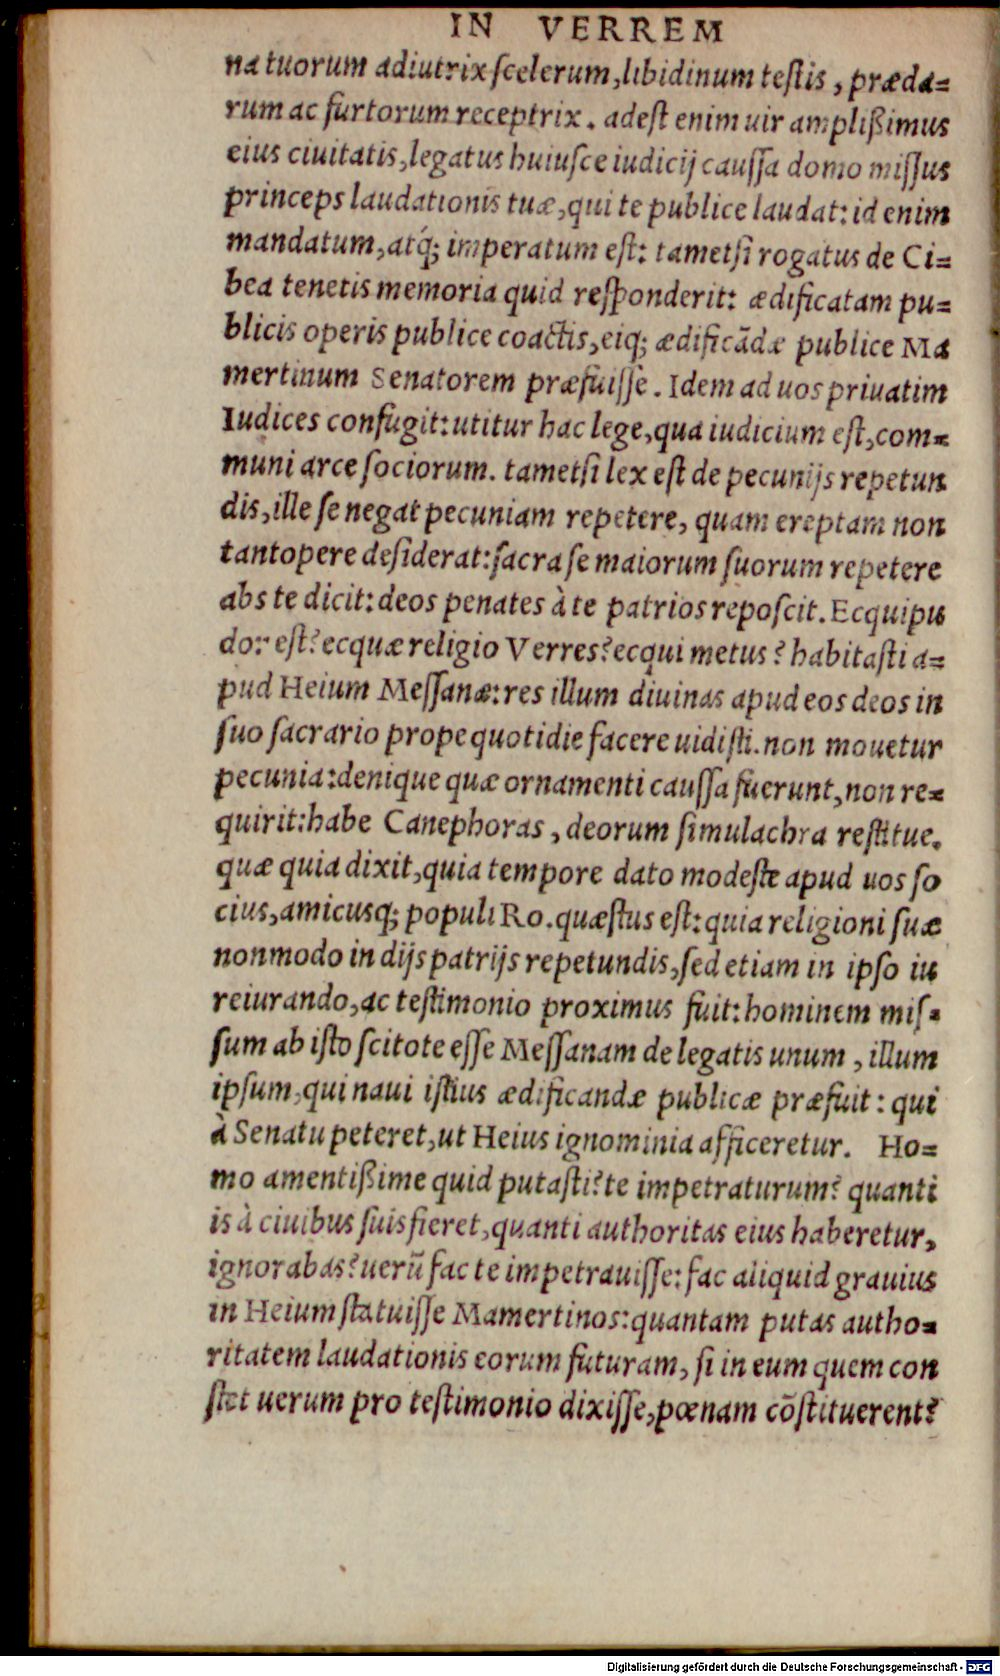 IN VERREM
na tuorum adiutrix ſcelerum, libidinum teſtis, præda=
rum ac furtorum receptrix. adeſt enim uir ampliſſimus
eius ciuitatis, legatus huiuſce iudicij cauſſa domo miſſus
princeps laudationis tuæ, qui te publice laudat: id enim
mandatum, atq́; imperatum eſt: tametſi rogatus de Ci=
bea tenetis memoria quid reſponderit: ædificatam pu=
blicis operis publice coactis, eiq; ædificādæ publice Ma
mertinum Senatorem præfuiſſe. Idem ad uos priuatim
Iudices confugit: utitur hac lege, qua iudicium eſt, com=
muni arce ſociorum. tametſi lex eſt de pecunijs repetun
dis, ille ſe negat pecuniam repetere, quam ereptam non
tantopere deſiderat: ſacra ſe maiorum ſuorum repetere
abs te dicit: deos penates à te patrios repoſcit. Ecqui pu
dor eſt? ecquæ religio Verres? ecqui metus? habitaſti a=
pud Heium Meſſanæ: res illum diuinas apud eos deos in
ſuo ſacrario prope quotidie facere uidiſti. non mouetur
pecunia: denique quæ ornamenti cauſſa fuerunt, non re=
quirit: habe Canephoras, deorum ſimulachra reſtitue.
quæ quia dixit, quia tempore dato modeſte apud uos ſo
cius, amicusq; populi Ro. quæſtus eſt: quia religioni ſuæ
nonmodo in dijs patrijs repetundis, ſed etiam in ipſo iu
reiurando, ac teſtimonio proximus fuit: hominem miſ=
ſum ab iſto ſcitote eſſe Meſſanam de legatis unum, illum
ipſum, qui naui iſtius ædificandæ publicæ præfuit: qui
à Senatu peteret, ut Heius ignominia afficeretur. Ho=
mo amentiſſime quid putaſti? te impetraturum? quanti
is à ciuibus ſuis fieret, quanti authoritas eius haberetur,
ignorabas? uerū fac te impetrauiſſe: fac aliquid grauius
in Heium ſtatuiſſe Mamertinos: quantam putas autho=
ritatem laudationis eorum futuram, ſi in eum quem con
ſtet uerum pro teſtimonio dixiſſe, pœnam cōſtituerent?
Digitalisierung gefördert durch die Deutsche Forschungsgemeinschaft - DFG